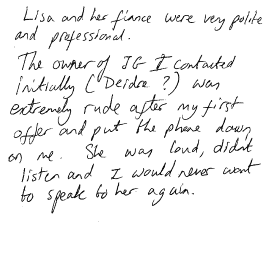 Lisa and her fiance were very polite
and professional.
The owner of JG I contacted
initially (Deidre ?) was
extremely rude after my first
offer and put the phone down
on me. She was loud, didnt
listen and I would never want
to speak to her again.